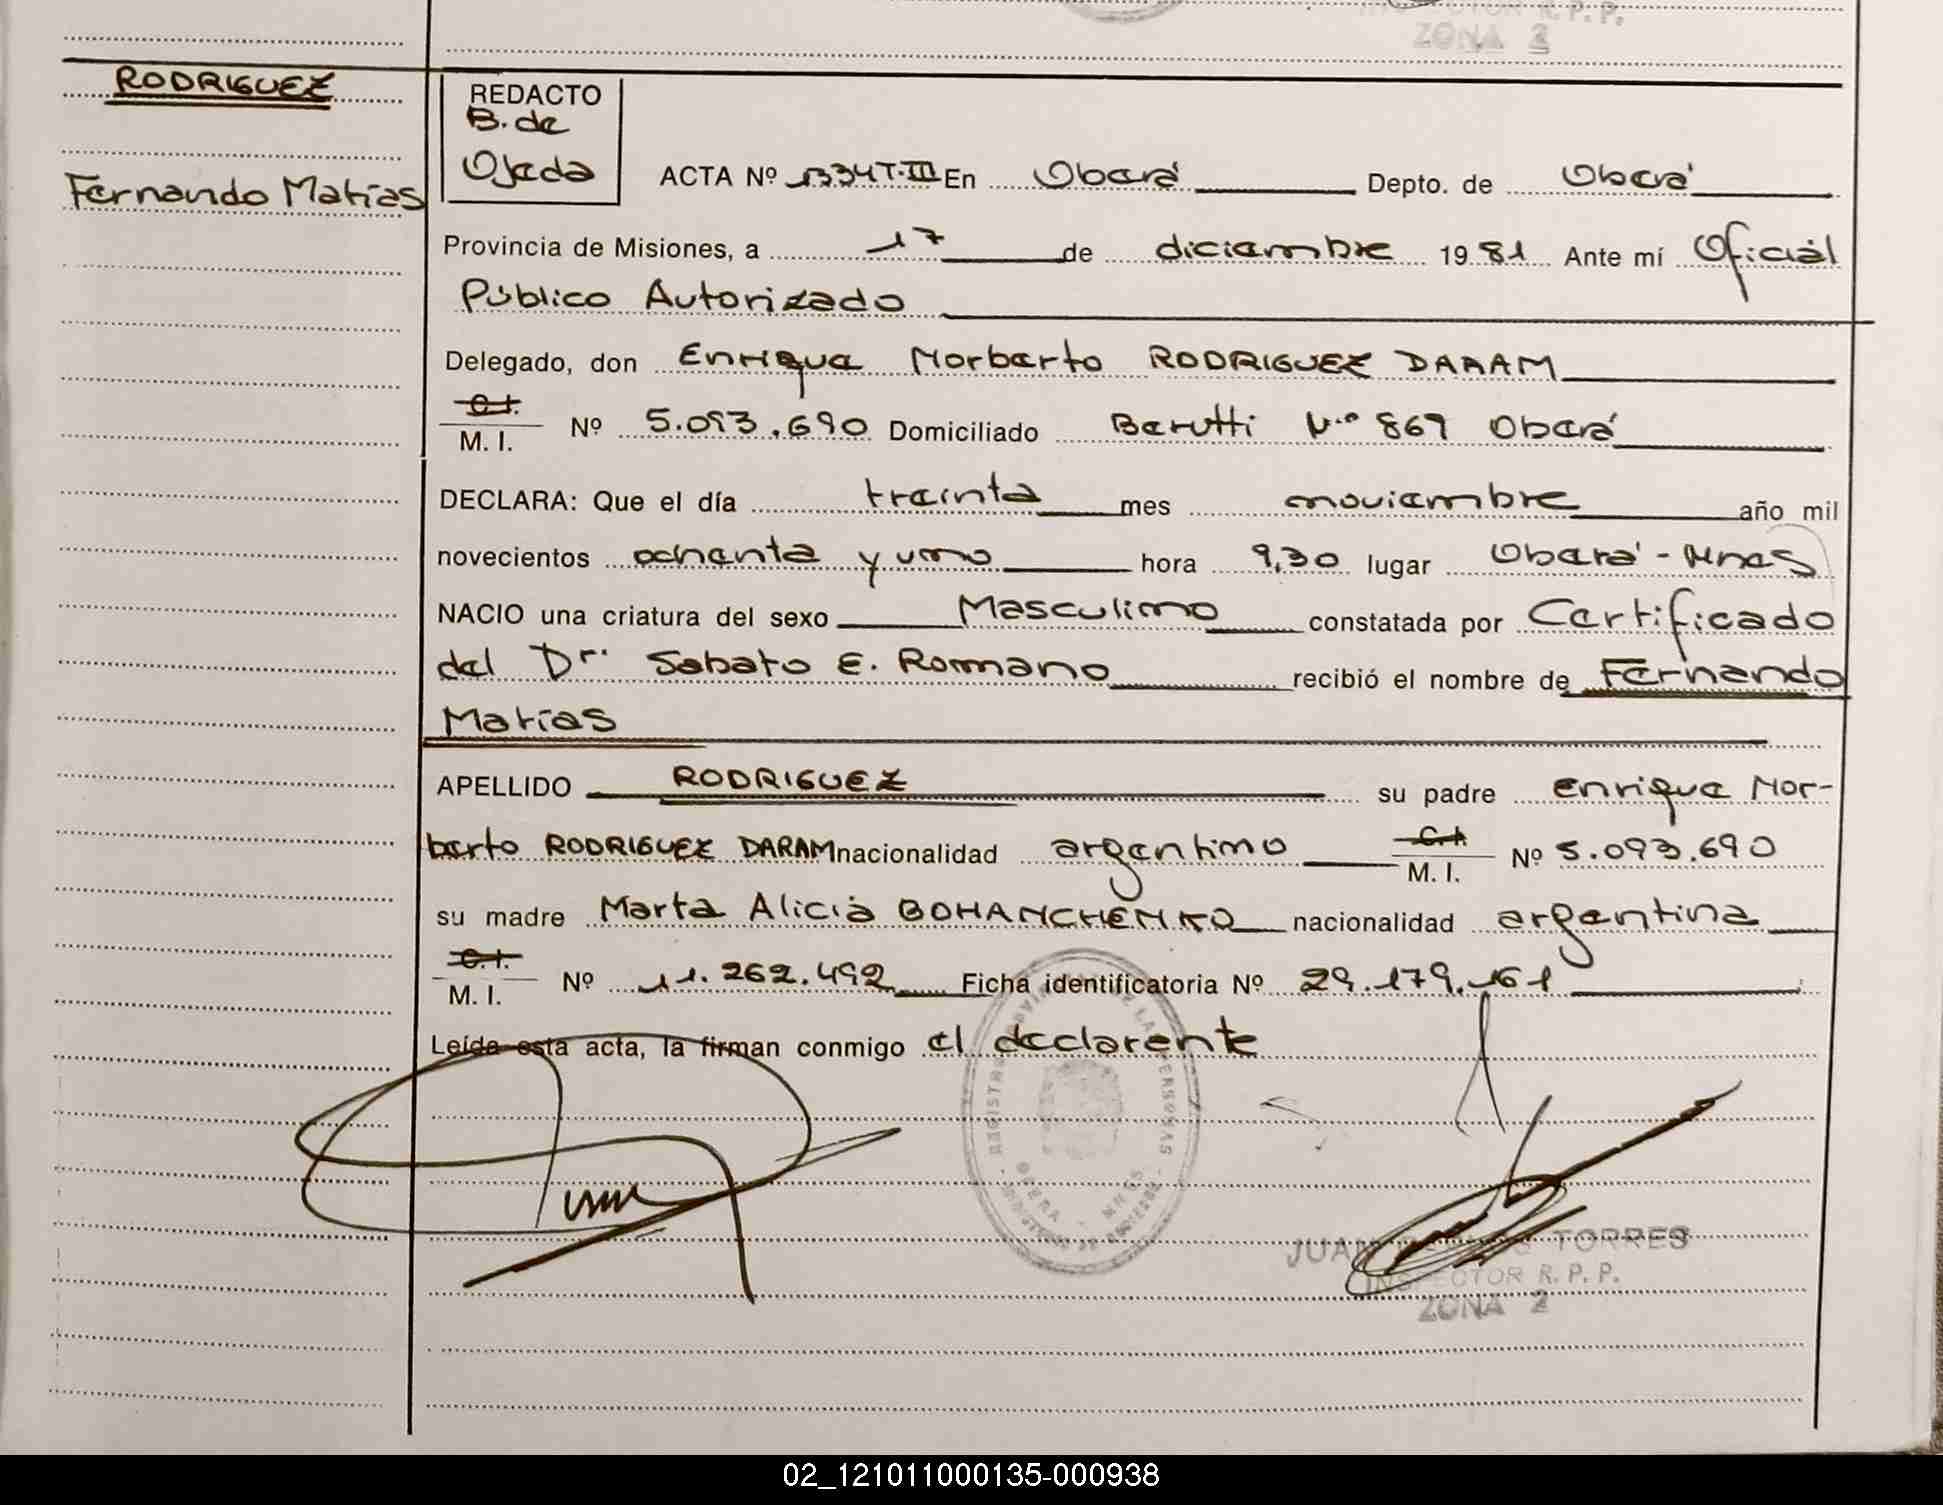 INSPECTOR R.P.P.
ZONA 2
RODRIGUEZ
Fernando Matías
REDACTO
B. de
Ojeda
ACTA Nº 1334 T.III En Oberá Depto. de Oberá
Provincia de Misiones, a 17 de diciembre 1981 Ante mí Oficial
Público Autorizado
Delegado, don Enrique Norberto RODRIGUEZ DARAM
C.I.
M. I. Nº 5.093.690 Domiciliado Berutti Nº 869 Oberá
DECLARA: Que el día treinta mes noviembre año mil
novecientos ochenta y uno hora 9,30 lugar Oberá - Mnes
NACIO una criatura del sexo Masculino constatada por Certificado
del Dr. Sabato E. Romano recibió el nombre de Fernando
Matías
APELLIDO RODRIGUEZ su padre Enrique Nor-
berto RODRIGUEZ DARAM nacionalidad argentino C.I. M. I. Nº 5.093.690
su madre Marta Alicia BOHANCHENKO nacionalidad argentina
C.I.
M. I. Nº 11.262.492 Ficha identificatoria Nº 29.179.161
Leída esta acta, la firman conmigo el declarente
OBERA - MNES
JUAN TORRES
INSPECTOR R. P. P.
ZONA 2
02_121011000135-000938